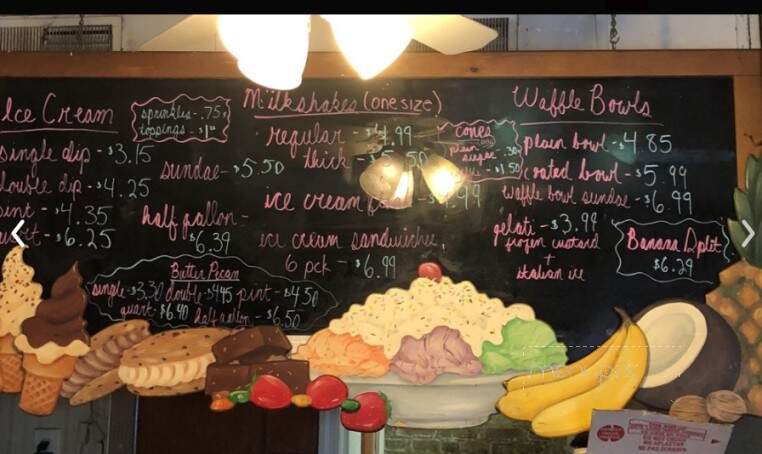 Ice Cream
single dip - $3.15
double dip - $4.25
pint - $4.35
quart - $6.25
sprinkles - .75¢
toppings - $1⁰⁰
sundae - $5.50
half gallon -
$6.39
Butter Pecan
single $3.30 double $4.45 pint - $4.50
quart $6.40 half gallon - $6.50
Milkshakes (one size)
regular - $4.99
thick - $5.50
ice cream
ice cream sandwiches,
6 pck - $6.99
Cones
plain
sugar - .30
$1.50
Waffle Bowls
plain bowl - $4.85
coated bowl - $5.99
waffle bowl sundae - $6.99
gelati - $3.99
frozen custard
+
italian ice
Banana Split
$6.29